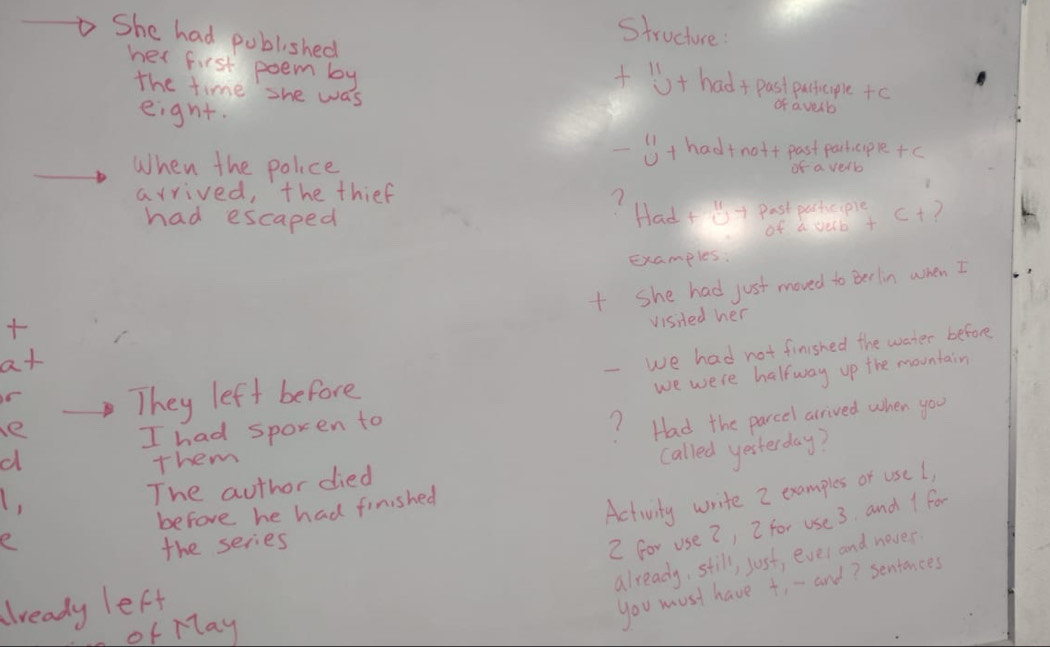 She had published
her first poem by
the time she was
eight.
When the police
arrived, the thief
had escaped
+
at
r
e
d
l,
e
They left before
I had spoken to
them
The author died
before he had finished
the series
already left
of May
Structure:
+ + had + past participle + c
of a verb
- + had + not + past participle + c
of a verb
?
Had + + past participle + c + ?
of a verb
Examples:
+ She had just moved to Berlin when I
visited her
- we had not finished the water before
we were halfway up the mountain
? Had the parcel arrived when you
called yesterday?
Activity write 2 examples of use 1,
2 for use 2, 2 for use 3. and 1 for
already, still, just, ever and never.
You must have +, - and ? sentences